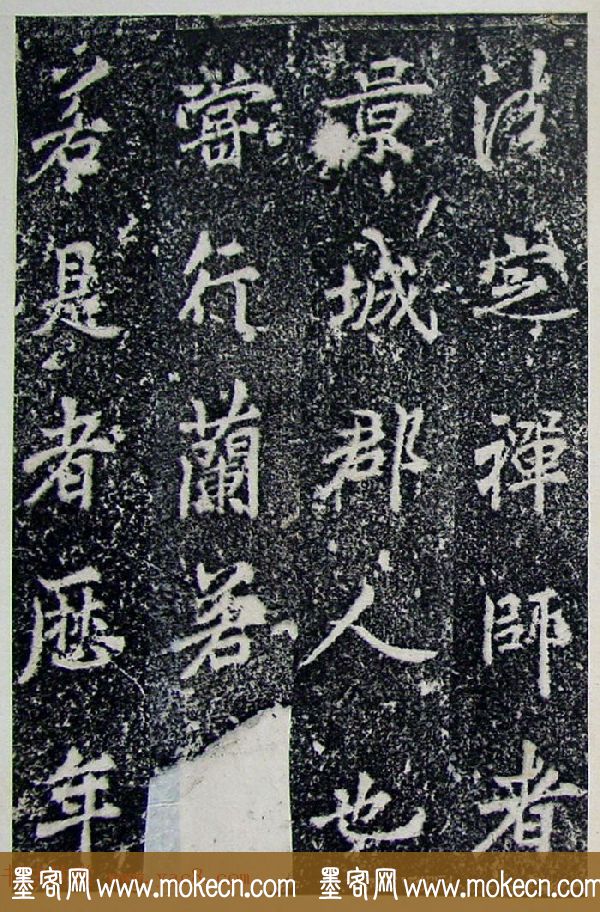 法定禪師者
景城郡人也
嘗行蘭若
若是者歷年
墨客网 www.mokecn.com 墨客网 www.mokecn.com